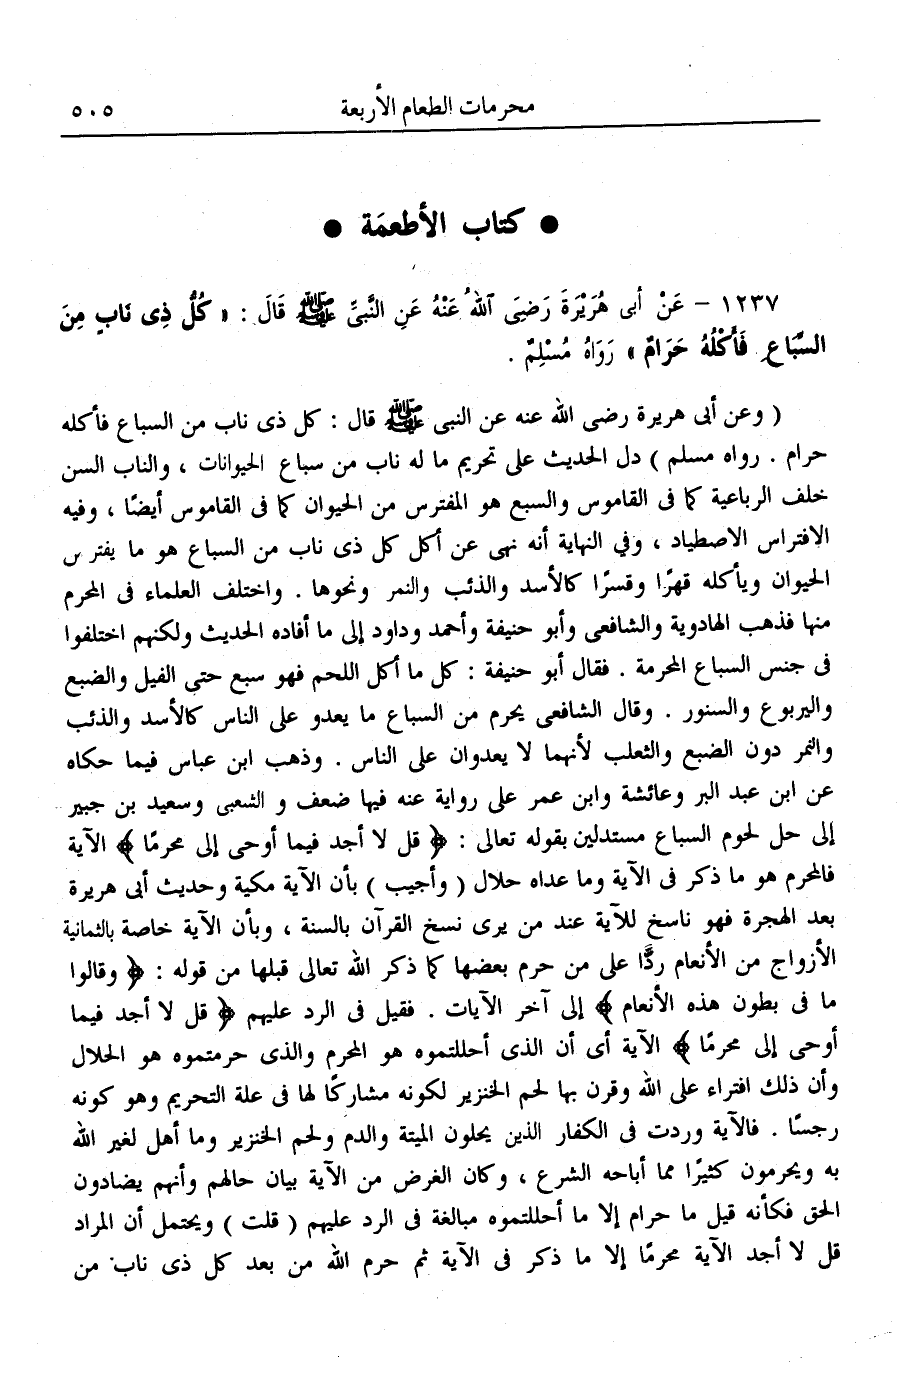 محرمات الطعام الأربعة ٥٠٥
● كتاب الأطعمَة ●
١٢٣٧ – عَنْ أبى هُرَيْرَةَ رَضِىَ ٱللهُ عَنْهُ عَنِ النَّبىِّ ﷺ قَالَ : « كُلُّ ذِى نَابٍ مِنَ
السِّبَاعِ فَأَكْلُهُ حَرَامٌ » رَوَاهُ مُسْلِمٌ .
( وعن أبى هريرة رضى الله عنه عن النبى ﷺ قال : كل ذى ناب من السباع فأكله
حرام . رواه مسلم ) دل الحديث على تحريم ما له ناب من سباع الحيوانات ، والناب السن
خلف الرباعية كما فى القاموس والسبع هو المفترس من الحيوان كما فى القاموس أيضًا ، وفيه
الافتراس الاصطياد ، وفي النهاية أنه نهى عن أكل كل ذى ناب من السباع هو ما يفترس
الحيوان ويأكله قهرًا وقسرًا كالأسد والذئب والنمر ونحوها . واختلف العلماء فى المحرم
منها فذهب الهادوية والشافعى وأبو حنيفة وأحمد وداود إلى ما أفاده الحديث ولكنهم اختلفوا
فى جنس السباع المحرمة . فقال أبو حنيفة : كل ما أكل اللحم فهو سبع حتى الفيل والضبع
واليربوع والسنور . وقال الشافعى يحرم من السباع ما يعدو على الناس كالأسد والذئب
والنمر دون الضبع والثعلب لأنهما لا يعدوان على الناس . وذهب ابن عباس فيما حكاه
عن ابن عبد البر وعائشة وابن عمر على رواية عنه فيها ضعف و الشعبى وسعيد بن جبير
إلى حل لحوم السباع مستدلين بقوله تعالى : ﴿ قل لا أجد فيما أوحى إلى محرمًا ﴾ الآية
فالمحرم هو ما ذكر فى الآية وما عداه حلال ( وأجيب ) بأن الآية مكية وحديث أبى هريرة
بعد الهجرة فهو ناسخ للآية عند من يرى نسخ القرآن بالسنة ، وبأن الآية خاصة بالثمانية
الأزواج من الأنعام ردًّا على من حرم بعضها كما ذكر الله تعالى قبلها من قوله : ﴿ وقالوا
ما فى بطون هذه الأنعام ﴾ إلى آخر الآيات . فقيل فى الرد عليهم ﴿ قل لا أجد فيما
أوحى إلى محرمًا ﴾ الآية أى أن الذى أحللتموه هو المحرم والذى حرمتموه هو الحلال
وأن ذلك افتراء على الله وقرن بها لحم الخنزير لكونه مشاركًا لها فى علة التحريم وهو كونه
رجسًا . فالآية وردت فى الكفار الذين يحلون الميتة والدم ولحم الخنزير وما أهل لغير الله
به ويحرمون كثيرًا مما أباحه الشرع ، وكان الغرض من الآية بيان حالهم وأنهم يضادون
الحق فكأنه قيل ما حرام إلا ما أحللتموه مبالغة فى الرد عليهم ( قلت ) ويحتمل أن المراد
قل لا أجد الآية محرمًا إلا ما ذكر فى الآية ثم حرم الله من بعد كل ذى ناب من